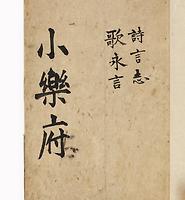 詩言志
歌永言
小樂府